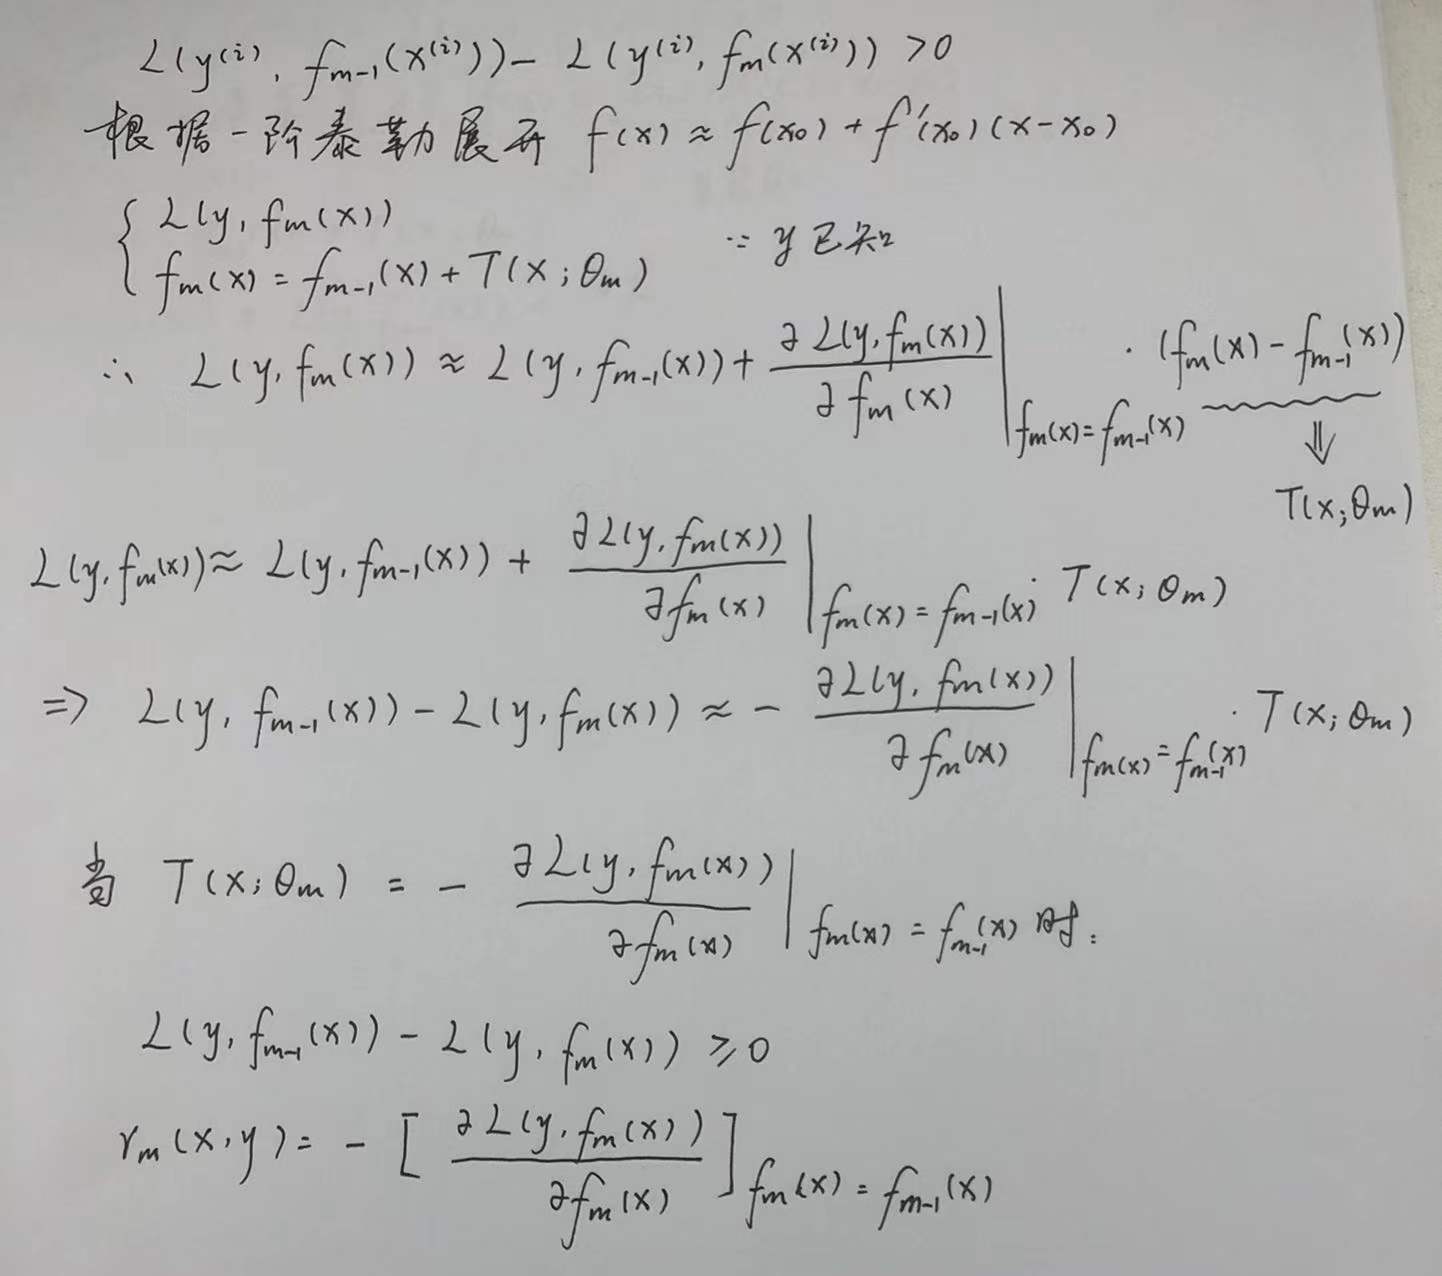 L(y⁽ⁱ⁾, fₘ₋₁(x⁽ⁱ⁾)) - L(y⁽ⁱ⁾, fₘ(x⁽ⁱ⁾)) > 0
根据一阶泰勒展开 f(x) ≈ f(x₀) + f′(x₀)(x-x₀)
{ L(y, fₘ(x))
fₘ(x) = fₘ₋₁(x) + T(x; θₘ) ∵ y已知
∴ L(y, fₘ(x)) ≈ L(y, fₘ₋₁(x)) + ∂L(y, fₘ(x)) / ∂fₘ(x) | fₘ(x) = fₘ₋₁(x) · (fₘ(x) - fₘ₋₁(x))
⇓
T(x; θₘ)
L(y, fₘ(x)) ≈ L(y, fₘ₋₁(x)) + ∂L(y, fₘ(x)) / ∂fₘ(x) | fₘ(x) = fₘ₋₁(x) · T(x; θₘ)
=> L(y, fₘ₋₁(x)) - L(y, fₘ(x)) ≈ - ∂L(y, fₘ(x)) / ∂fₘ(x) | fₘ(x) = fₘ₋₁(x) · T(x; θₘ)
当 T(x; θₘ) = - ∂L(y, fₘ(x)) / ∂fₘ(x) | fₘ(x) = fₘ₋₁(x) 时:
L(y, fₘ₋₁(x)) - L(y, fₘ(x)) ≥ 0
rₘ(x, y) = - [ ∂L(y, fₘ(x)) / ∂fₘ(x) ] fₘ(x) = fₘ₋₁(x)